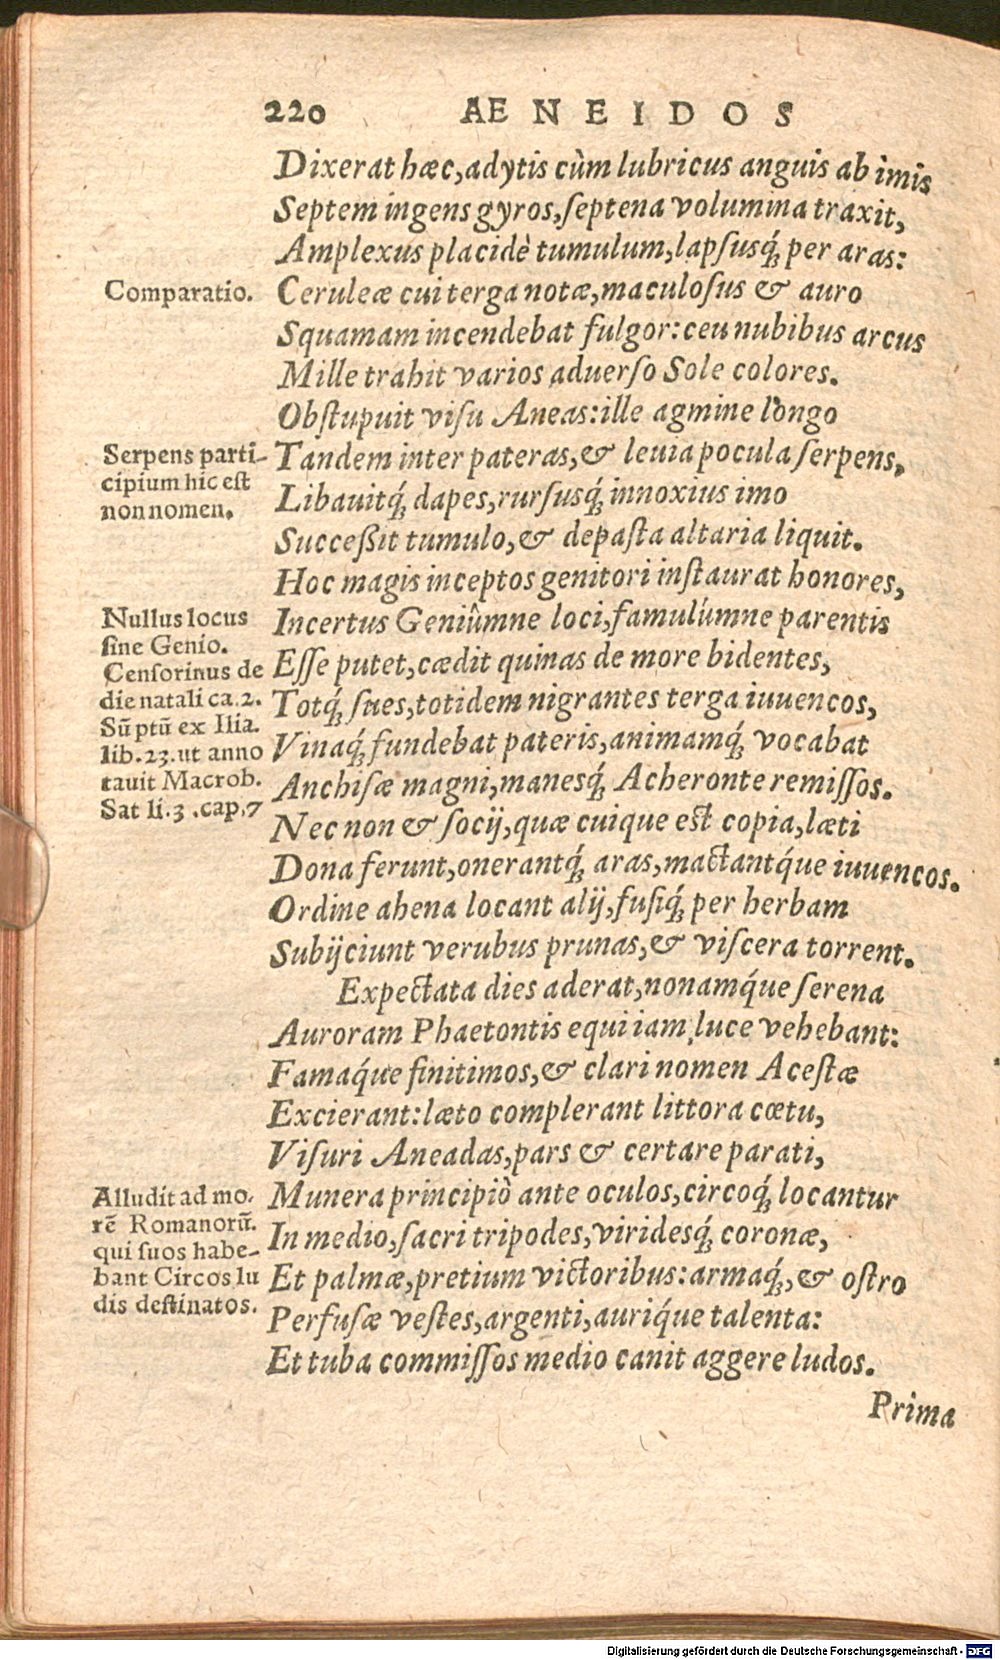 220 AENEIDOS
Dixerat hæc, adytis cùm lubricus anguis ab imis
Septem ingens gyros, ſeptena volumina traxit,
Amplexus placidè tumulum, lapſusq́; per aras:
Comparatio.
Ceruleæ cui terga notæ, maculoſus & auro
Squamam incendebat fulgor: ceu nubibus arcus
Mille trahit varios aduerſo Sole colores.
Obſtupuit viſu Aneas: ille agmine longo
Serpens parti-
cipium hic eſt
non nomen.
Tandem inter pateras, & leuia pocula ſerpens,
Libauitq́; dapes, rurſusq́; innoxius imo
Succeßit tumulo, & depaſta altaria liquit.
Hoc magis inceptos genitori inſtaurat honores,
Nullus locus
ſine Genio.
Cenſorinus de
die natali ca. 2.
Sũptũ ex Ilia.
lib. 23. ut anno
tauit Macrob.
Sat li. 3. cap. 7
Incertus Geniûmne loci, famulúmne parentis
Eſſe putet, cædit quinas de more bidentes,
Totq́; ſues, totidem nigrantes terga iuuencos,
Vinaq́; fundebat pateris, animamq́; vocabat
Anchiſæ magni, manesq́; Acheronte remiſſos.
Nec non & ſocij, quæ cuique eſt copia, læti
Dona ferunt, onerantq́; aras, mactantq́ue iuuencos.
Ordine ahena locant alij, fuſiq́; per herbam
Subijciunt verubus prunas, & viſcera torrent.
Expectata dies aderat, nonamq́ue ſerena
Auroram Phaetontis equi iam luce vehebant:
Famaq́ue finitimos, & clari nomen Aceſtæ
Excierant: læto complerant littora cœtu,
Viſuri Aneadas, pars & certare parati,
Alludit ad mo-
rẽ Romanorũ.
qui ſuos habe-
bant Circos lu
dis deſtinatos.
Munera principiò ante oculos, circoq́; locantur
In medio, ſacri tripodes, viridesq́; coronæ,
Et palmæ, pretium victoribus: armaq́;, & oſtro
Perfuſæ veſtes, argenti, auriq́ue talenta:
Et tuba commiſſos medio canit aggere ludos.
Prima
Digitalisierung gefördert durch die Deutsche Forschungsgemeinschaft - DFG